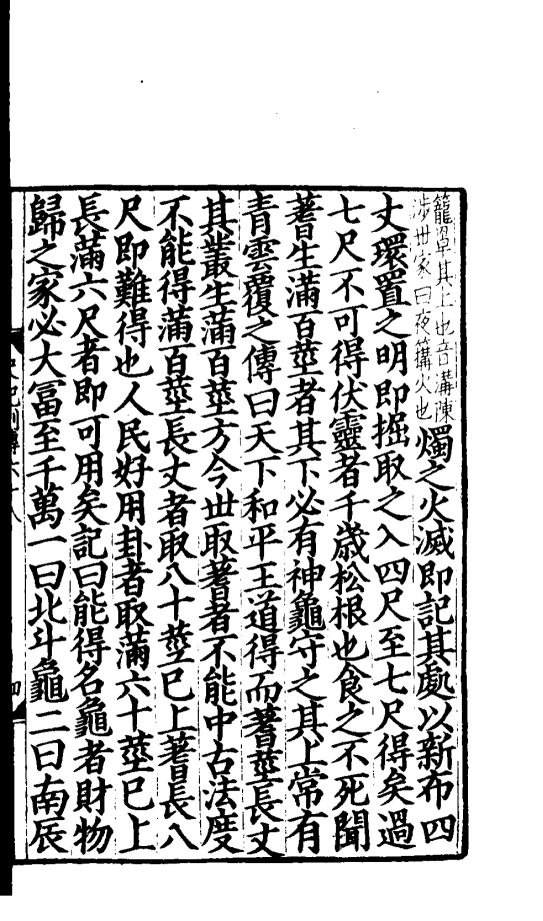 籠罩其上也音溝陳
涉世家曰夜篝火也
燭之火滅即記其處以新布四
丈環置之明即掘取之入四尺至七尺得矣過
七尺不可得伏靈者千歲松根也食之不死聞
蓍生滿百莖者其下必有神龜守之其上常有
青雲覆之傳曰天下和平王道得而蓍莖長丈
其叢生滿百莖方今世取蓍者不能中古法度
不能得滿百莖長丈者取八十莖已上蓍長八
尺即難得也人民好用卦者取滿六十莖已上
長滿六尺者即可用矣記曰能得名龜者財物
歸之家必大冨至千萬一曰北斗龜二曰南辰